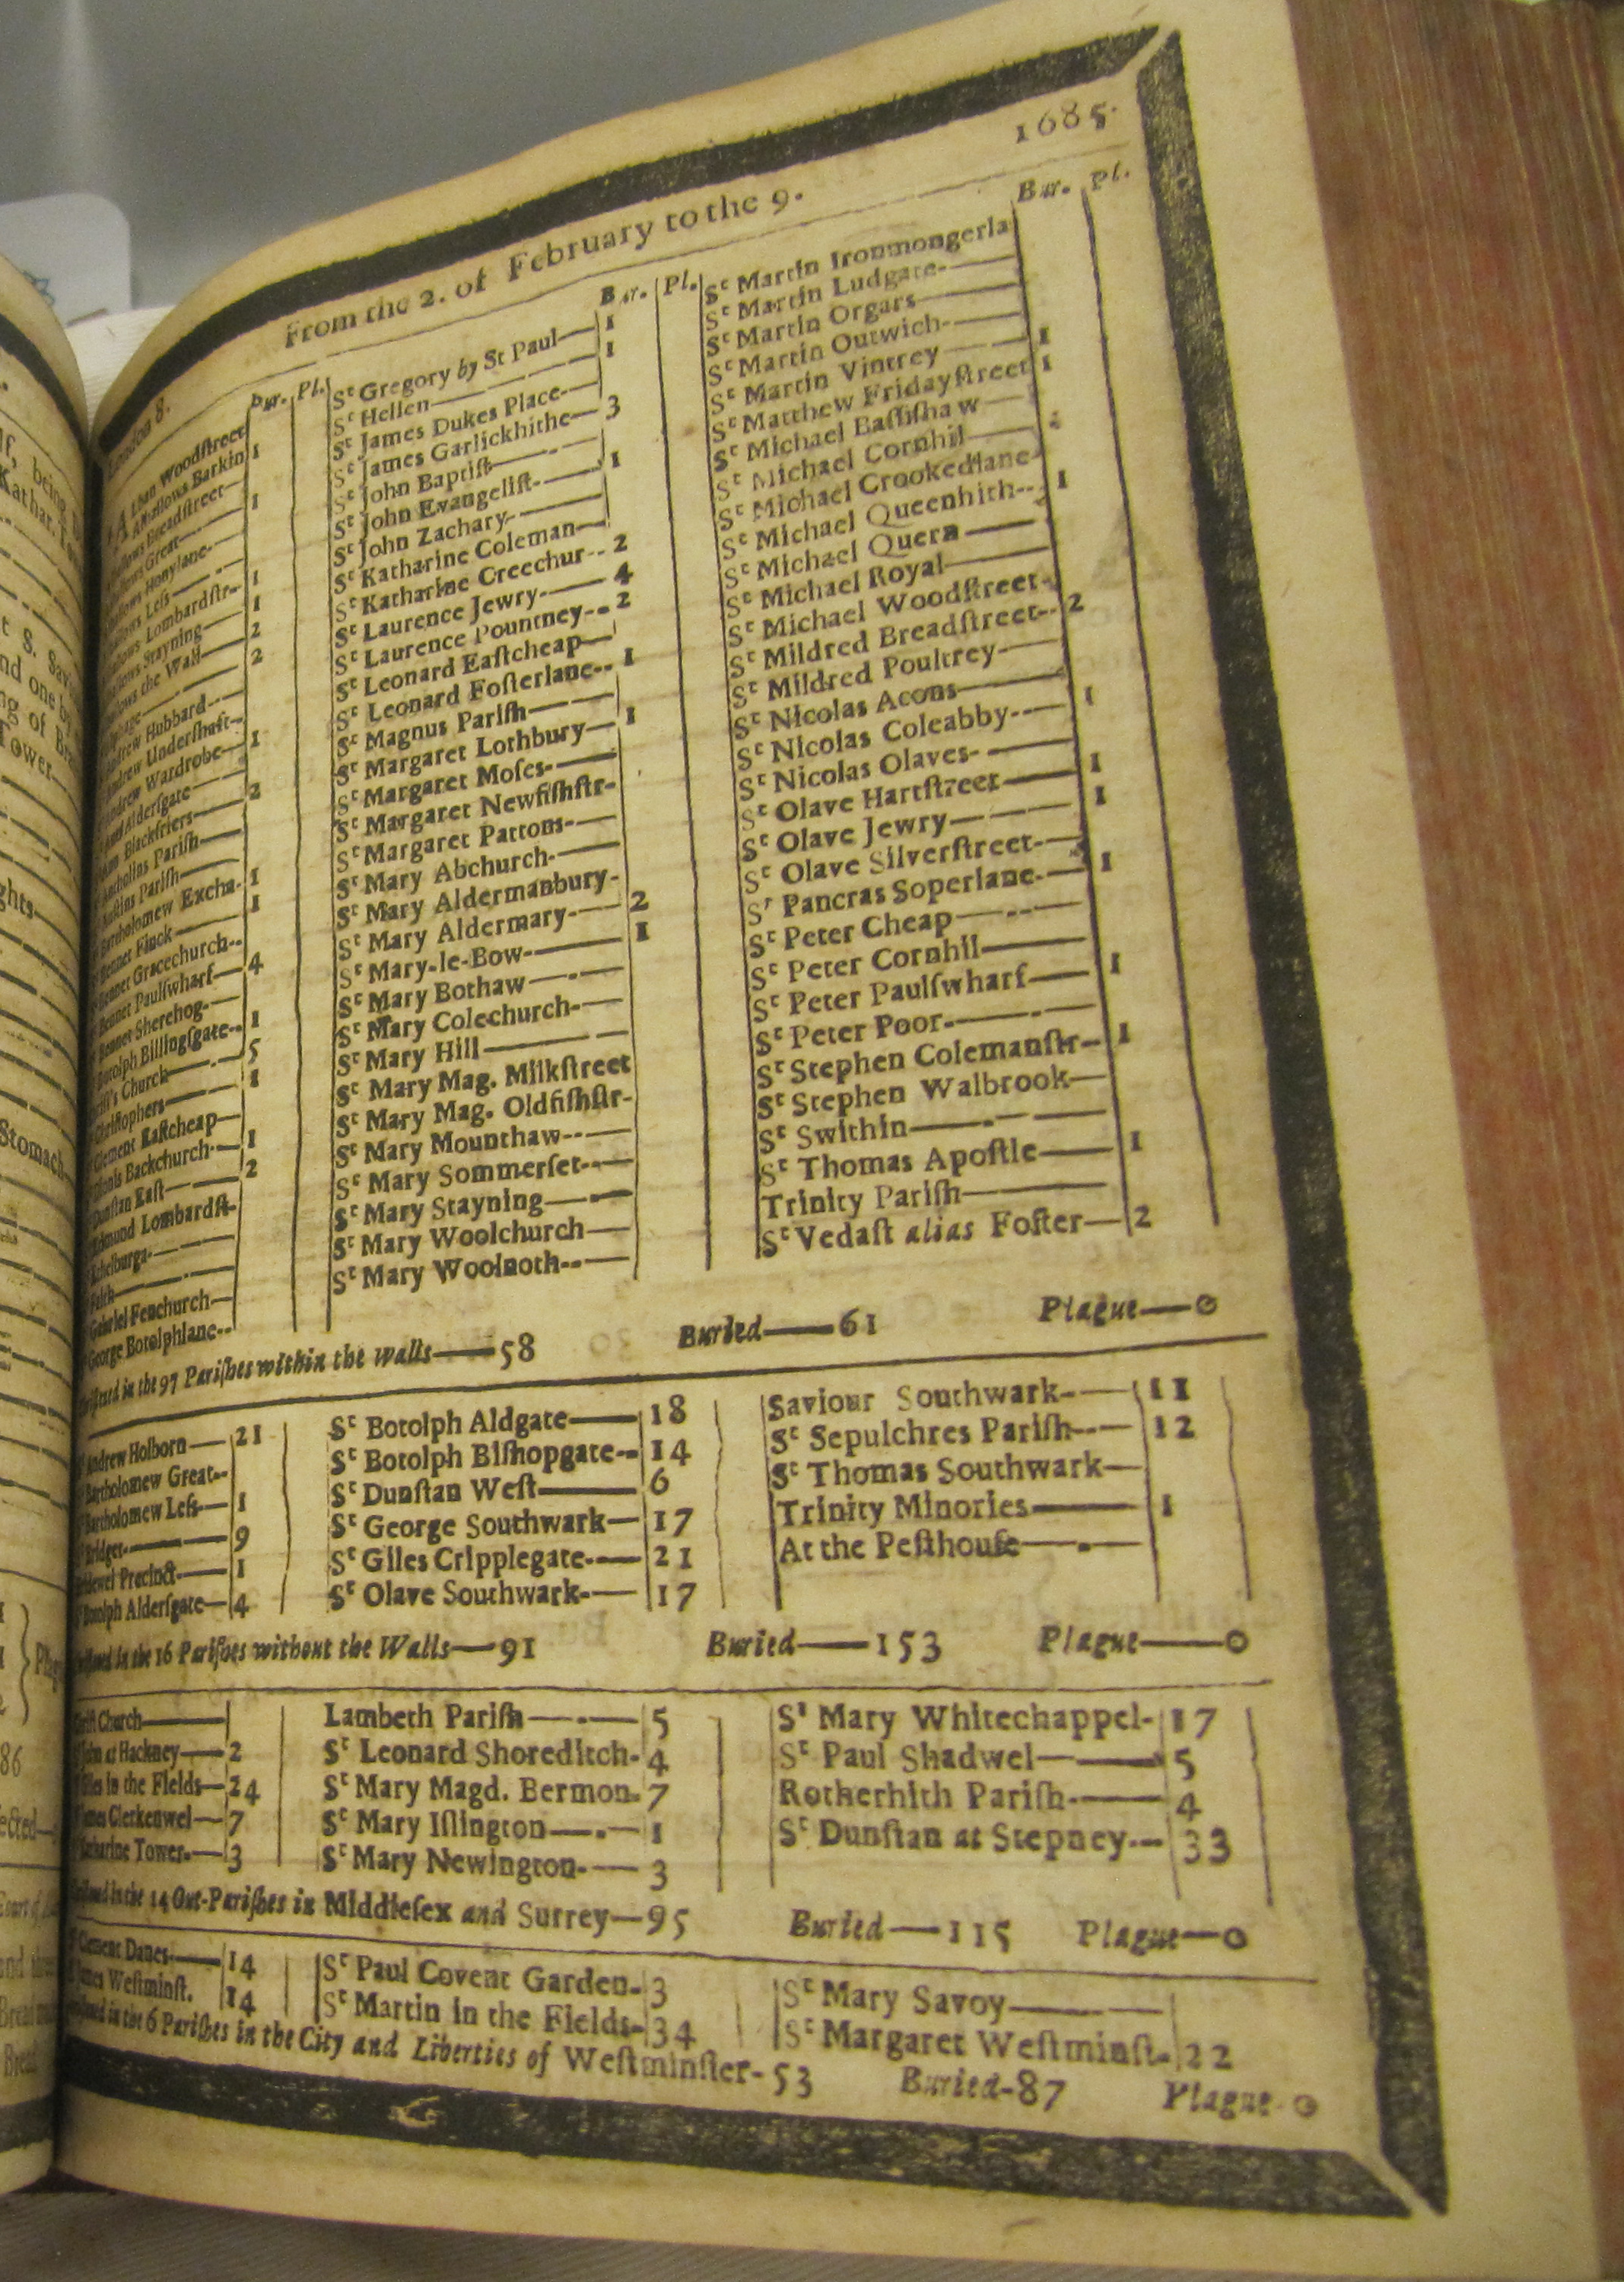 London 8.
From the 2. of February to the 9.
1685.
Bur. Pl.
Woodſtreet
Barkin 1
Breadſtreet
Great 1
Honylane
Leſs
Lombardſtr 1
Stayning 1
the Wall 2
2
Hubbard
Underſhaft
Wardrobe 1
Alderſgate
Blackfriers 2
Pariſh
Pariſh
Bartholomew Excha. 1
Bennet Finck 1
Bennet Gracechurch
Bennet Paulſwharf 4
Bennet Sherehog
Botolph Billingſgate 1
Church 5
1
Clement Eaſtcheap
Backchurch 1
Dunſtan Eaſt 2
Edmund Lombardſt
Gabriel Fenchurch
George Botolphlane
Bur. Pl.
Sᵗ Gregory by St Paul 1
Sᵗ Hellen 1
Sᵗ James Dukes Place
Sᵗ James Garlickhithe 3
Sᵗ John Baptiſt
Sᵗ John Evangeliſt 1
Sᵗ John Zachary
Sᵗ Katharine Coleman
Sᵗ Katharine Creechur 2
Sᵗ Laurence Jewry 4
Sᵗ Laurence Pountney 2
Sᵗ Leonard Eaſtcheap
Sᵗ Leonard Foſterlane 1
Sᵗ Magnus Pariſh
Sᵗ Margaret Lothbury 1
Sᵗ Margaret Moſes
Sᵗ Margaret Newfiſhſtr
Sᵗ Margaret Pattons
Sᵗ Mary Abchurch
Sᵗ Mary Aldermanbury
Sᵗ Mary Aldermary 2
Sᵗ Mary-le-Bow 1
Sᵗ Mary Bothaw
Sᵗ Mary Colechurch
Sᵗ Mary Hill
Sᵗ Mary Mag. Milkſtreet
Sᵗ Mary Mag. Oldfiſhſtr
Sᵗ Mary Mounthaw
Sᵗ Mary Sommerſet
Sᵗ Mary Stayning
Sᵗ Mary Woolchurch
Sᵗ Mary Woolnoth
Bur. Pl.
Sᵗ Martin Ironmongerla
Sᵗ Martin Ludgate
Sᵗ Martin Orgars
Sᵗ Martin Outwich
Sᵗ Martin Vintrey 1
Sᵗ Matthew Fridayſtreet 1
Sᵗ Michael Baſſiſhaw
Sᵗ Michael Cornhil
Sᵗ Michael Crookedlane
Sᵗ Michael Queenhith 1
Sᵗ Michael Quern
Sᵗ Michael Royal
Sᵗ Michael Woodſtreet
Sᵗ Mildred Breadſtreet 2
Sᵗ Mildred Poultrey
Sᵗ Nicolas Acons
Sᵗ Nicolas Coleabby 1
Sᵗ Nicolas Olaves
Sᵗ Olave Hartſtreet 1
Sᵗ Olave Jewry 1
Sᵗ Olave Silverſtreet
Sᵗ Pancras Soperlane 1
Sᵗ Peter Cheap
Sᵗ Peter Cornhil
Sᵗ Peter Paulſwharf 1
Sᵗ Peter Poor
Sᵗ Stephen Colemanſtr 1
Sᵗ Stephen Walbrook
Sᵗ Swithin
Sᵗ Thomas Apoſtle 1
Trinity Pariſh
Sᵗ Vedaſt alias Foſter 2
in the 97 Pariſhes within the walls 58 Buried 61 Plague 0
Andrew Holborn 21
Bartholomew Great
Bartholomew Leſs 1
Bridget 9
Precinct 1
Botolph Alderſgate 4
Sᵗ Botolph Aldgate 18
Sᵗ Botolph Biſhopgate 14
Sᵗ Dunſtan Weſt 6
Sᵗ George Southwark 17
Sᵗ Giles Cripplegate 21
Sᵗ Olave Southwark 17
Saviour Southwark 11
Sᵗ Sepulchres Pariſh 12
Sᵗ Thomas Southwark
Trinity Minories 1
At the Peſthouſe
in the 16 Pariſhes without the Walls 91 Buried 153 Plague 0
Church
at Hackney 2
in the Fields 24
Clerkenwel 7
Tower 3
Lambeth Pariſh 5
Sᵗ Leonard Shoreditch 4
Sᵗ Mary Magd. Bermon. 7
Sᵗ Mary Iſlington 1
Sᵗ Mary Newington 3
Sᵗ Mary Whitechappel 17
Sᵗ Paul Shadwel 5
Rotherhith Pariſh 4
Sᵗ Dunſtan at Stepney 33
in the 14 Out-Pariſhes in Middleſex and Surrey 95 Buried 115 Plague 0
Clement Danes 14
Weſtminſt. 14
Sᵗ Paul Covent Garden 3
Sᵗ Martin in the Fields 34
Sᵗ Mary Savoy
Sᵗ Margaret Weſtminſt 22
in the 6 Pariſhes in the City and Liberties of Weſtminſter 53 Buried 87 Plague 0